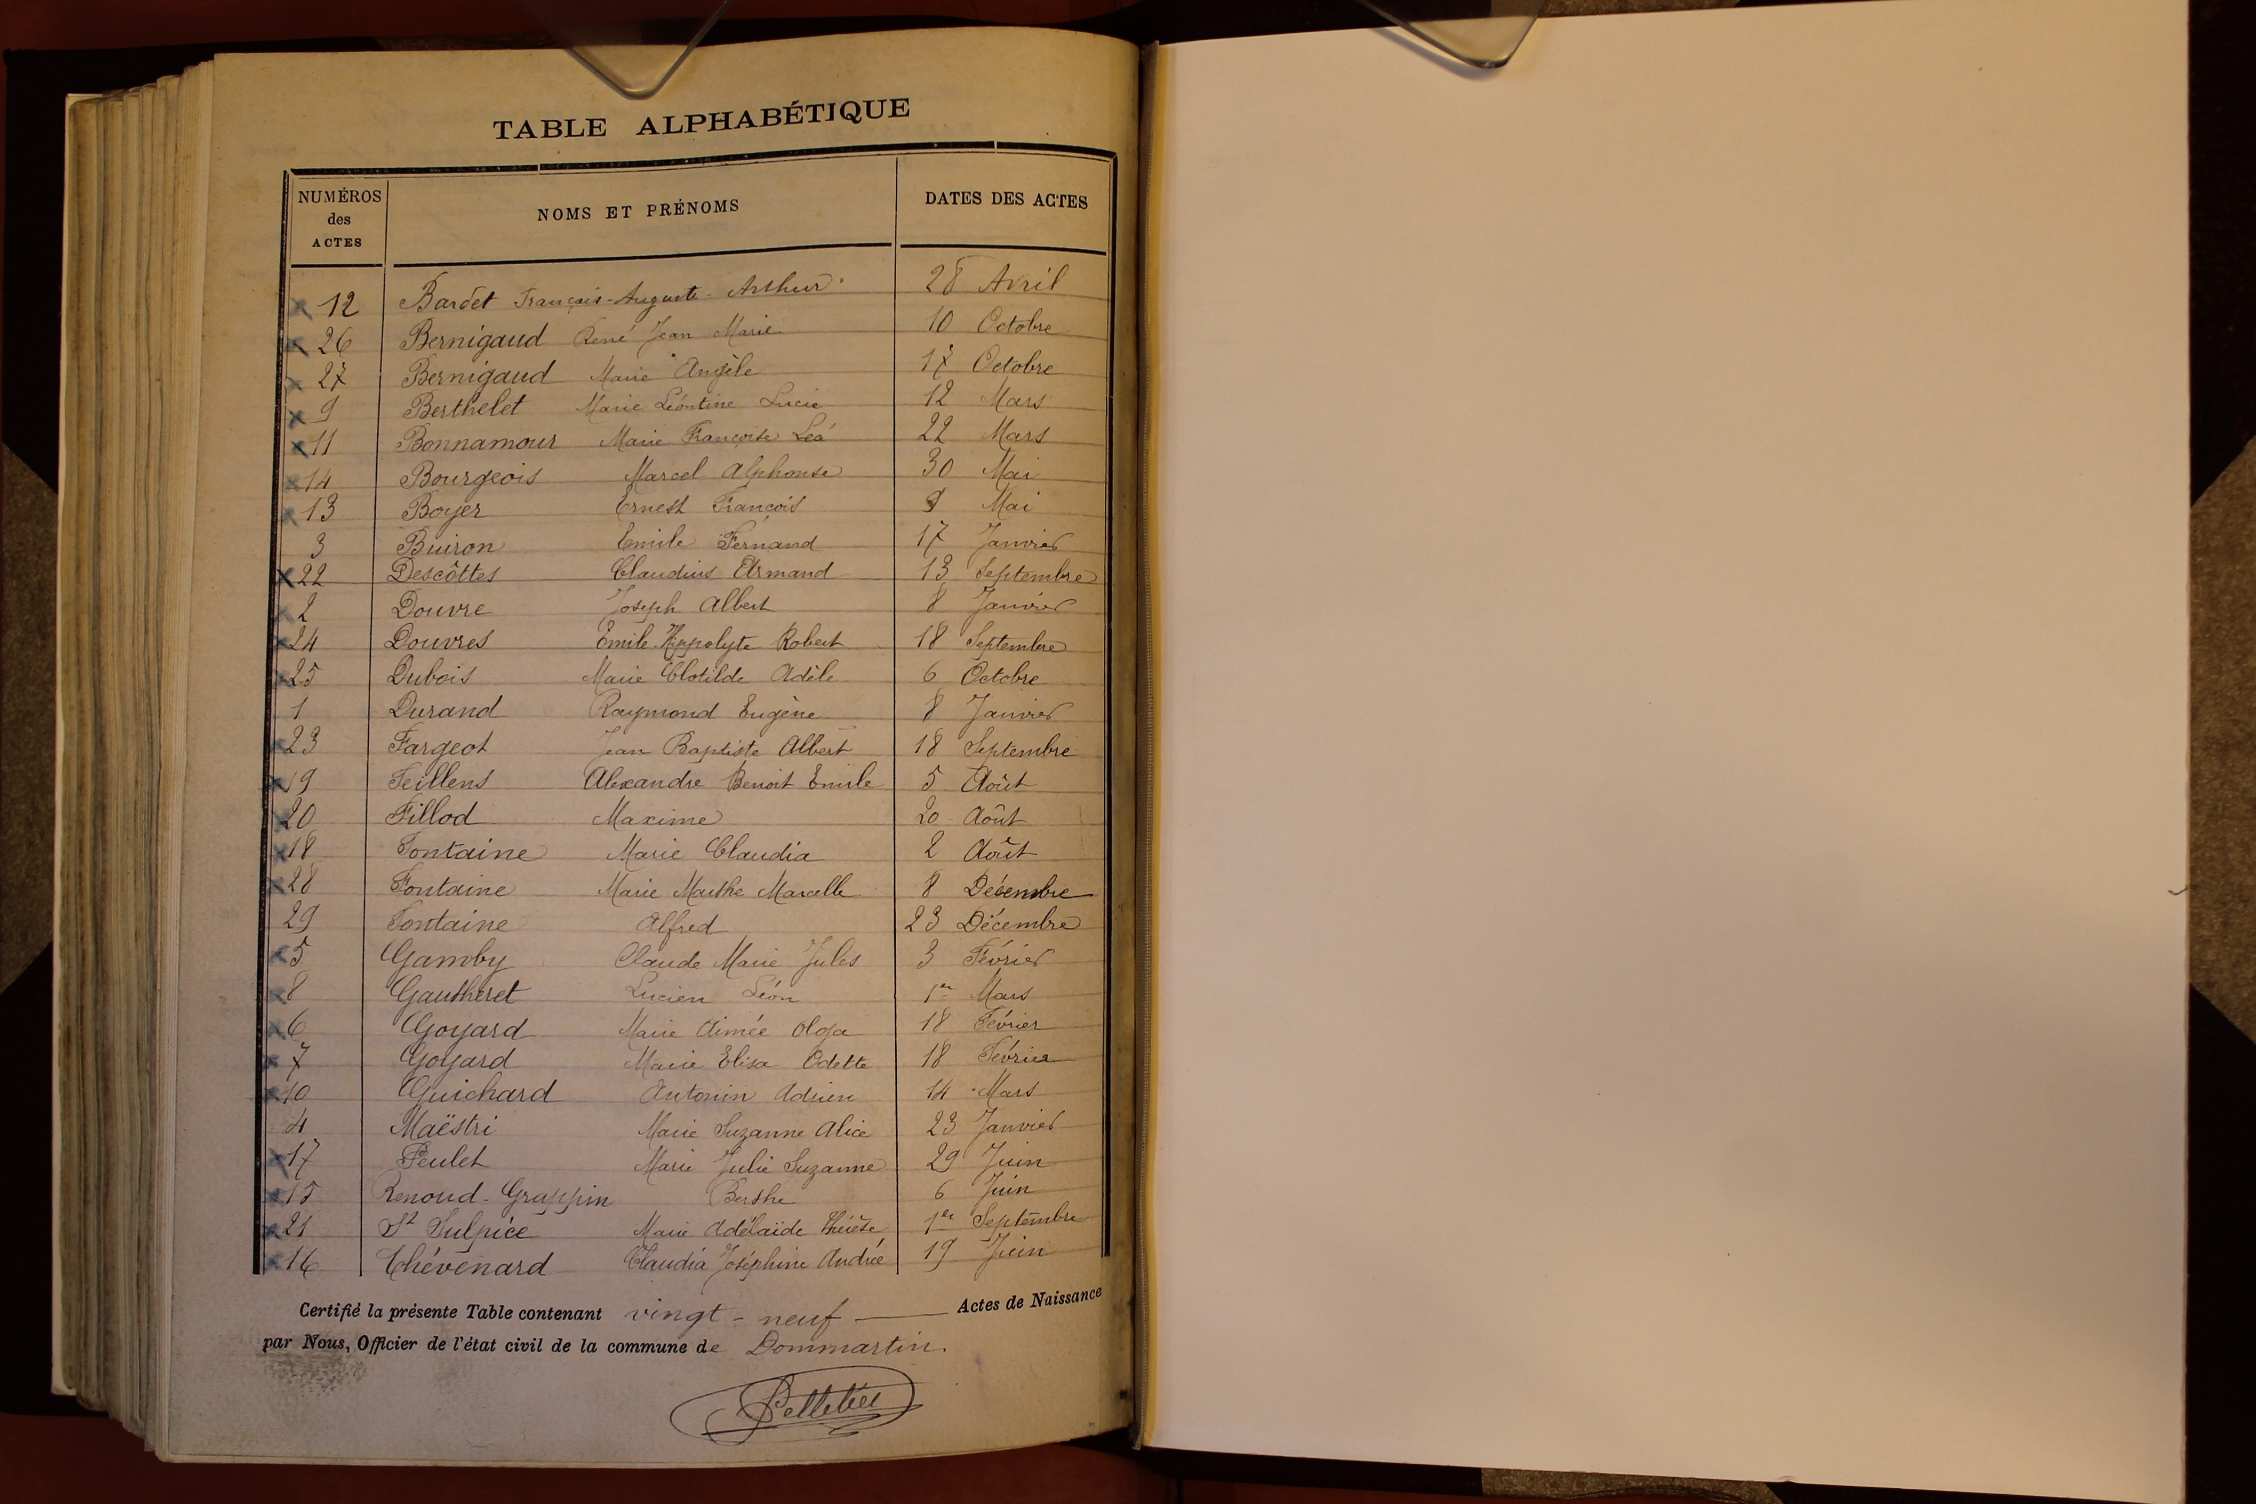 TABLE ALPHABÉTIQUE
NUMÉROS des ACTES NOMS ET PRÉNOMS DATES DES ACTES
12 Bardet François-Auguste-Arthur 28 Avril
26 Bernigaud René Jean Marie 10 Octobre
27 Bernigaud Marie Angèle 17 Octobre
9 Berthelet Marie Léontine Lucie 12 Mars
11 Bonnamour Marie Françoise Léa 22 Mars
14 Bourgeois Marcel Alphonse 30 Mai
13 Boyer Ernest François 9 Mai
3 Buiron Emile Fernand 17 Janvier
22 Descôttes Claudius Armand 13 Septembre
2 Douvre Joseph Albert 8 Janvier
24 Douvres Emile Hippolyte Robert 18 Septembre
25 Dubois Marie Clotilde Adèle 6 Octobre
1 Durand Raymond Eugène 8 Janvier
23 Fargeot Jean Baptiste Albert 18 Septembre
19 Feillens Alexandre Benoit Emile 5 Août
20 Fillod Maxime 20 Août
18 Fontaine Marie Claudia 2 Août
28 Fontaine Marie Marthe Marcelle 8 Décembre
29 Fontaine Alfred 23 Décembre
5 Gamby Claude Marie Jules 3 Février
8 Gautheret Lucien Léon 1er Mars
6 Goyard Marie Aimée Olga 18 Février
7 Goyard Marie Elisa Odette 18 Février
10 Guichard Antonin Adrien 14 Mars
4 Maëstri Marie Suzanne Alice 23 Janvier
17 Peulet Marie Julie Suzanne 29 Juin
15 Renoud-Grappin Berthe 6 Juin
21 St Sulpice Marie Adélaïde Thérèse 1er Septembre
16 Thévenard Claudia Joséphine Andrée 19 Juin
Certifié la présente Table contenant vingt-neuf Actes de Naissance
par Nous, Officier de l'état civil de la commune de Dommartin.
Pelletier